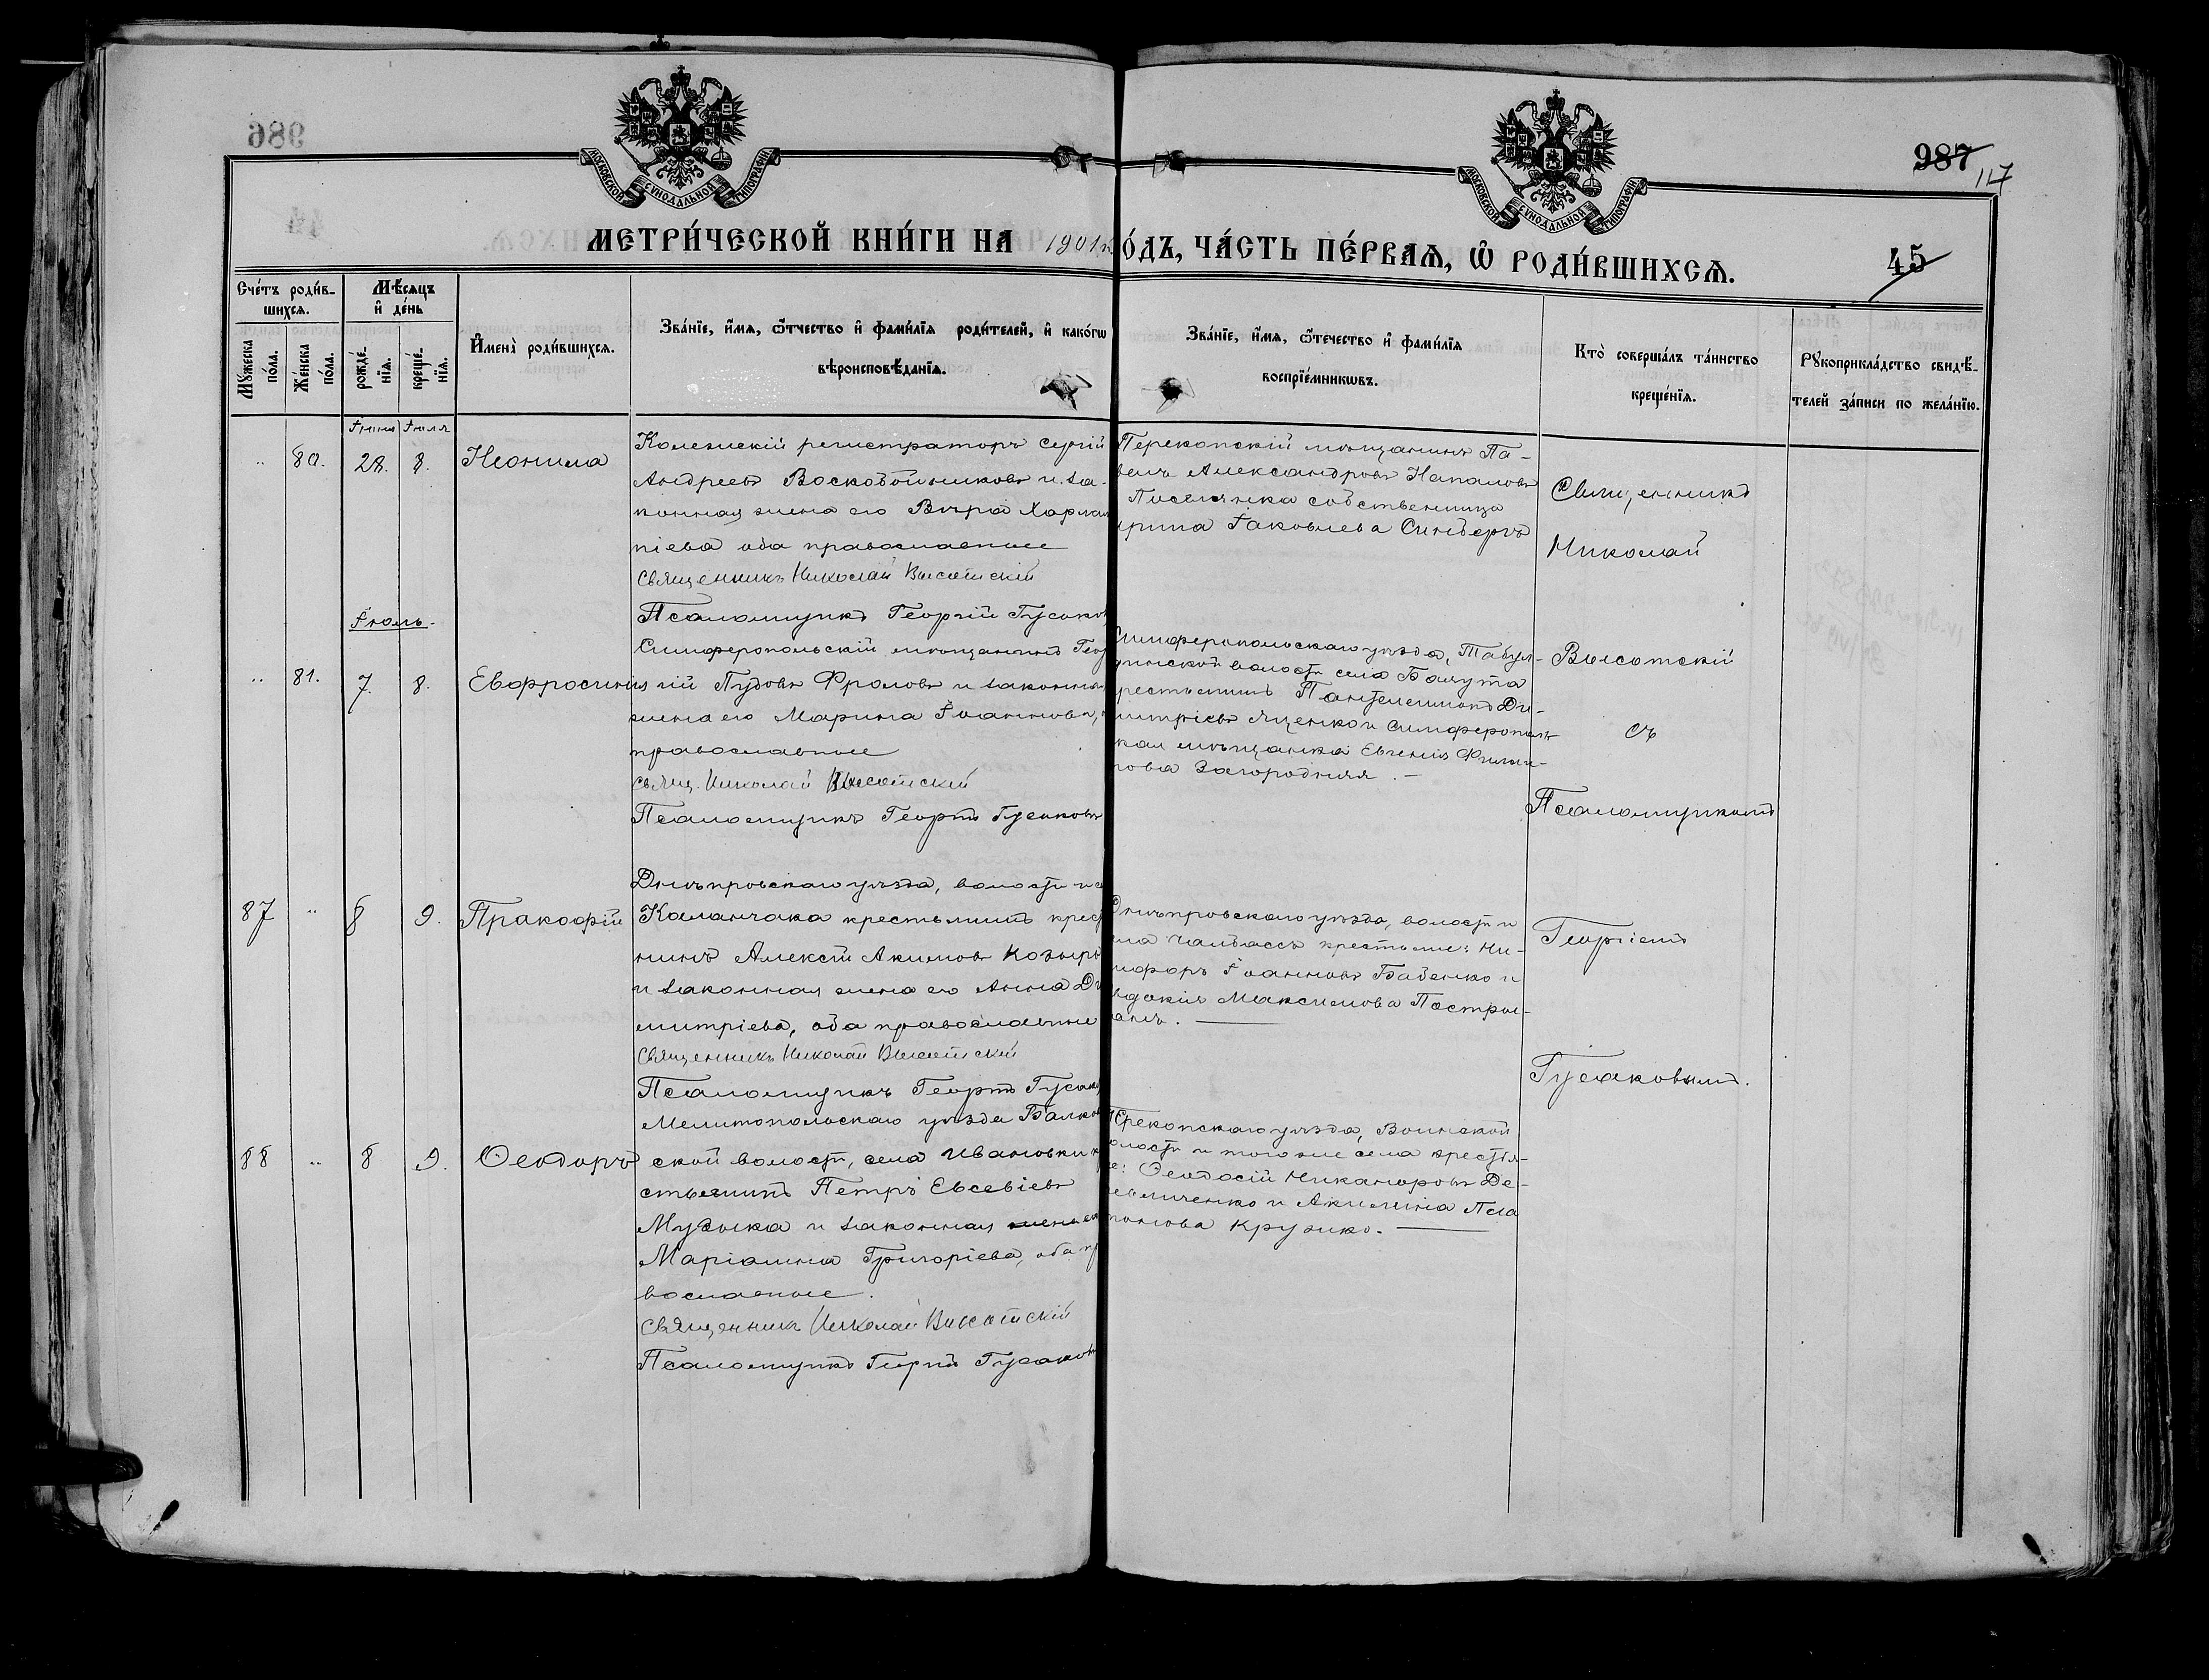 986
987
117
МОСКОВСКОЙ СѴНОДАЛЬНОЙ ТИПОГРАФІИ
МОСКОВСКОЙ СѴНОДАЛЬНОЙ ТИПОГРАФІИ
МЕТРИ́ЧЕСКОЙ КНИ́ГИ НА 1901 г
О́ДЪ, ЧА́СТЬ ПЕ́РВАѦ, Ѡ҆ РОДИ́ВШИХСѦ.
45
Сче́тъ роди́в-
шихсѧ.
Мѣ́сѧцъ
и҆ де́нь
Мꙋ́жеска по́ла.
Же́нска по́ла.
рожде́-
нїѧ.
креще́-
нїѧ.
И҆мена̀ роди́вшихсѧ.
Зва́нїе, и҆́мѧ, ѻ҆́тчество и҆ фами́лїѧ роди́телей, и҆ како́гѡ
вѣроисповѣ́данїѧ.
Зва́нїе, и҆́мѧ, ѻ҆те́чество и҆ фами́лїѧ
воспрїе́мникѡвъ.
Кто̀ соверша́лъ та́инство
креще́нїѧ.
Рꙋкоприкла́дство свидѣ́-
телей за́писи по жела́нїю.
Іюня Іюля
80. 28. 8. Неонила
Колежскій регистраторъ Сергій
Андреевъ Воскобойниковъ и за-
конная жена его Вѣра Харлам
піева оба православные
Священникъ Николай Высотскій
Псаломщикъ Георгій Гусаков
Перекопскій мѣщанинъ Па-
велъ Александровъ Напаловъ
Поселянка собственница
рина Іаковлева Синдеръ
Священникъ
Николай
Высотскій
съ
Псаломщикомъ
Георгіемъ
Гусаковымъ.
Іюль.
81. 7. 8. Евфросинія
Симферопольскій мѣщанинъ Геор
гій Пудовъ Фроловъ и законная
жена его Марина Іоаннова,
православные
Свящ. Николай Высотскій
Псаломщикъ Георгій Гусаковъ
Симферопольскаго уѣзда, Табул-
динской волости села
рестьянинъ Пантелеимонъ Ди-
митріевъ Яценко и Симферополь
кая мѣщанка Евгенія Филип-
пова Загородняя. —
87 8 9. Пракофій
Днѣпровскаго уѣзда, волости и се
Каланчака крестьянинъ крест
нинъ Алексѣй Акимовъ Козырь
и законная жена его Анна Ди
митріева, оба православные
Священникъ Николай Высотскій
Псаломщикъ Георгій Гусаков
Днѣпровскаго уѣзда, волости и
ла Чалбассъ крестьяне: Ни-
кифоръ Іоанновъ Бабенко и
вдокія Максимова Пастры-
88 8 9. Ѳеодоръ
Мелитопольскаго уѣзда Балков
ской волости, села Ивановки к
стьянинъ Петръ Евсевіевъ
Музыка и законная жена ег
Маріамна Григоріева, оба пр
вославные.
Священникъ Николай Высотскій
Псаломщикъ Георгій Гусаковъ
Перекопскаго уѣзда, Воинской
олости и того же села крестья-
е: Ѳеодосій Никаноровъ Де-
и Акилина Пла
тонова Крузико. —